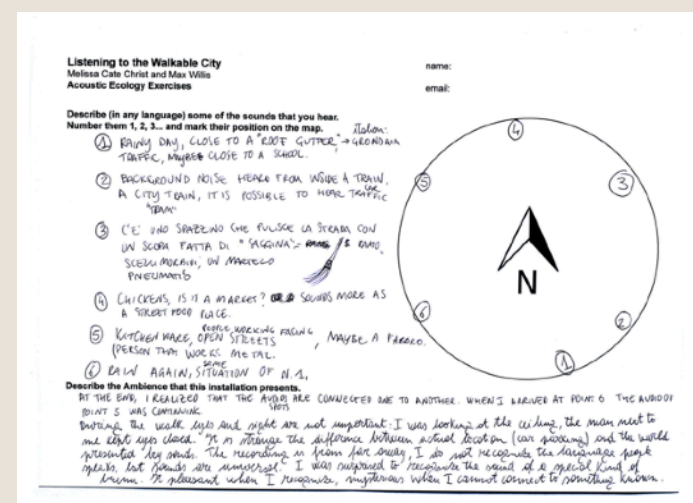 Listening to the Walkable City
Melissa Cate Christ and Max Willis
Acoustic Ecology Exercises
name:
email:
Describe (in any language) some of the sounds that you hear.
Number them 1, 2, 3... and mark their position on the map.
italian:
① RAINY DAY, CLOSE TO A "ROOF GUTTER" → GRONDAIA
TRAFFIC, MAYBE CLOSE TO A SCHOOL.
② BACKGROUND NOISE HEARD FROM INSIDE A TRAIN,
A CITY TRAIN, IT IS POSSIBLE TO HEAR CAR TRAFFIC
"TRAM"
③ C'E' UNO SPAZZINO CHE PULISCE LA STRADA CON
UN SCOPA FATTA DI "SAGGINA"
UN MARTELLO
PNEUMATIC
④ CHICKENS, IS IT A MARKET? SOUNDS MORE AS
A STREET FOOD PLACE.
⑤ KITCHEN WARE, OPEN STREETS PEOPLE WORKING FACING, MAYBE A FABBRO.
(PERSON THAT WORKS METAL.
⑥ RAIN AGAIN, SAME SITUATION OF N.1,
Describe the Ambience that this installation presents.
AT THE END, I REALIZED THAT THE AUDIO SPOTS ARE CONNECTED ONE TO ANOTHER. WHEN I ARRIVED AT POINT 6 THE AUDIO OF
POINT 5 WAS CONTINUING.
During the walk eyes and sight are not important. I was looking at the ceiling, the man next to
me kept eyes closed. It is strange the difference between actual location (car parking) and the world
presented by sounds. The recording is from far away, I do not recognize the language people
speaks, but sounds are universal. I was surprised to recognize the sound of a special kind of
broom. It pleasant when I recognize, mysterious when I cannot connect to something known.
④
⑤
③
N
⑥
②
①